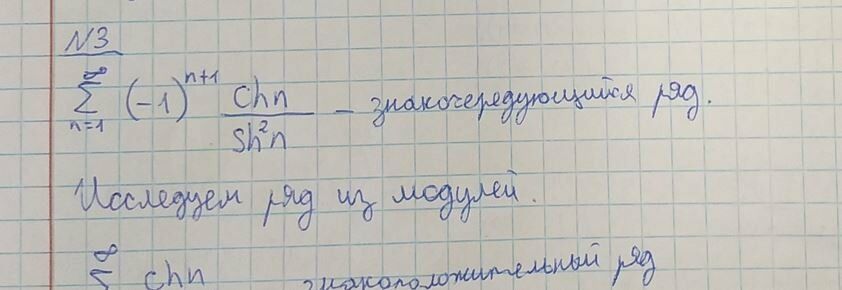 N3
∞
∑ (-1)ⁿ⁺¹ chn / sh²n – знакочередующийся ряд.
n=1
Исследуем ряд из модулей.
∞
∑ chn знакоположительный ряд